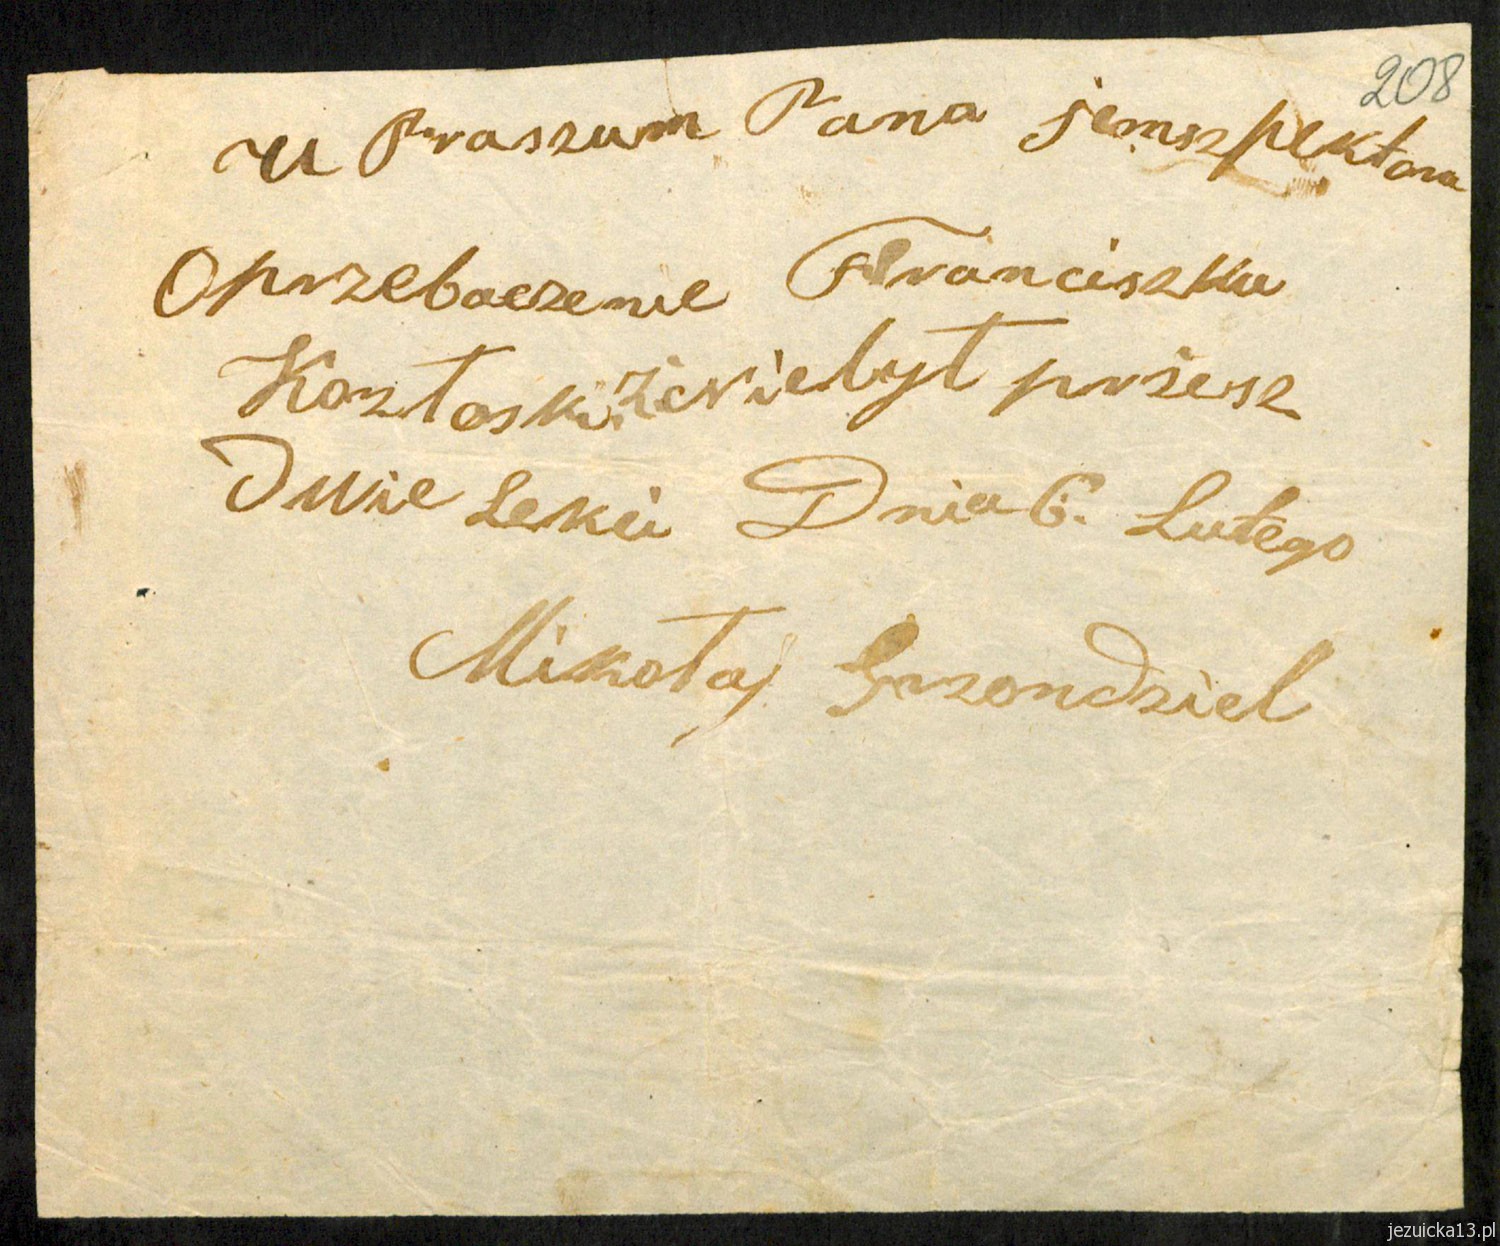 208
U Praszum Pana jemszpektora
Oprzebaczenie Franciszku
Kozłoski że niebył przesz
Dwie Lekci Dnia 6. Lutego
Mikołaj Grzondziel
jezuicka13.pl